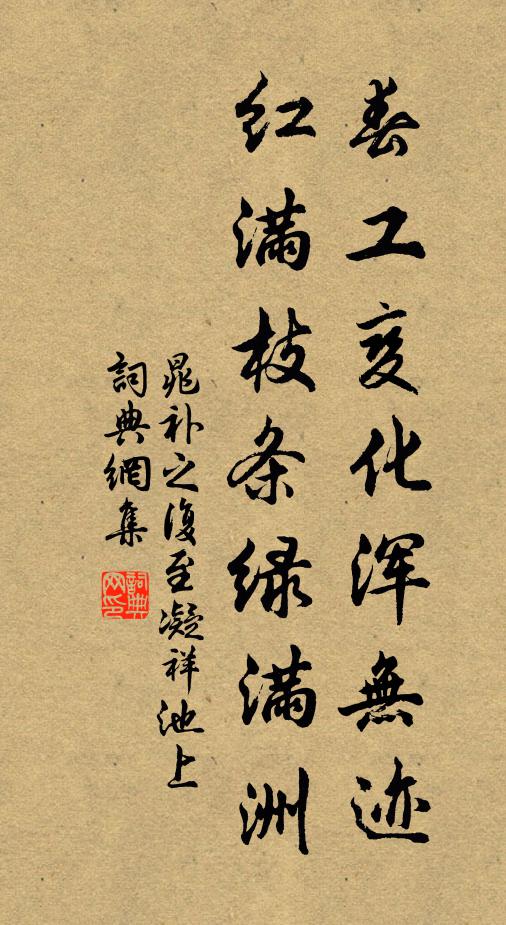 春工变化浑無迹
红满枝条绿满洲
晁补之復至凝祥池上
詞典網集
詞典网印